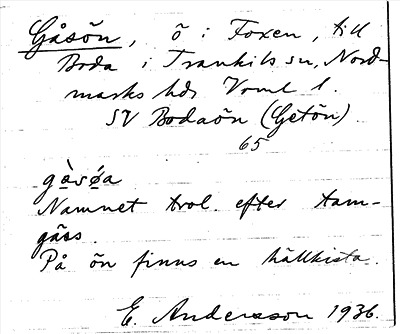 Gåsön, ö i Foxen, till
Boda i Trankils sn, Nord-
marks hd, Vrml l.
SV Bodaön (Getön).
65
gåsøa
Namnet trol. efter tam-
gäss.
På ön finns en hällkista.
E. Andersson 1936.